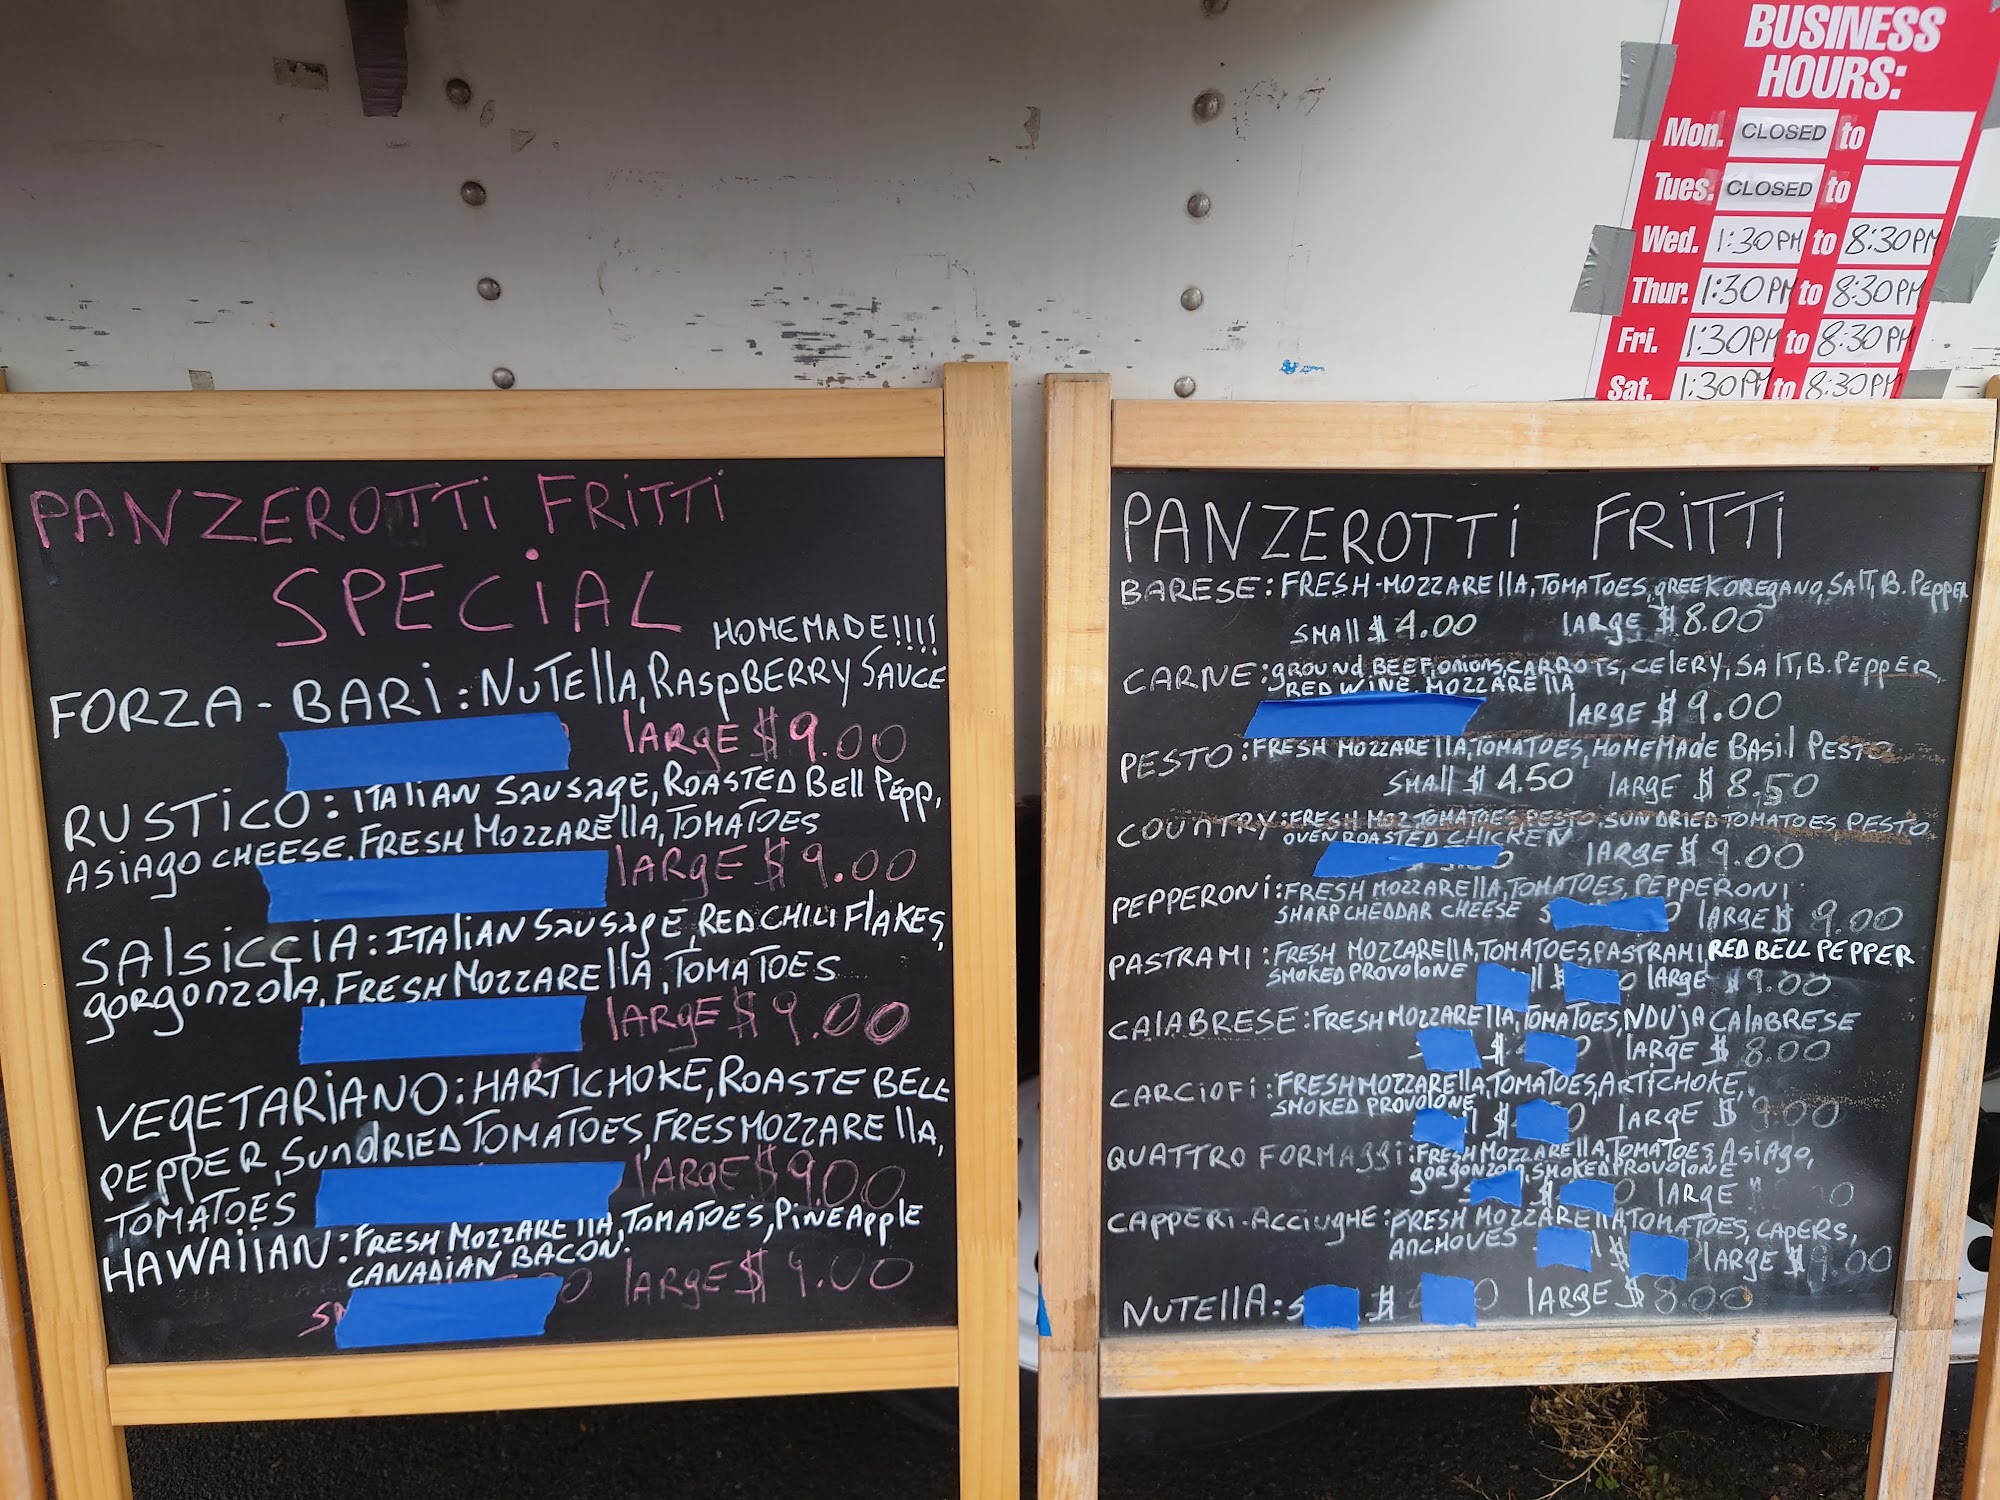 BUSINESS
HOURS:
Mon. CLOSED to
Tues. CLOSED to
Wed. 1:30PM to 8:30PM
Thur. 1:30PM to 8:30PM
Fri. 1:30PM to 8:30PM
Sat. 1:30PM to 8:30PM
PANZEROTTi FRiTTi
SPECiAL
HOMEMADE!!!!
FORZA-BARi: NuTEllA, RASpBERRY SAUCE
lARgE $ 9.00
RUSTiCO: iTALiAN SauSAgE, ROASTED BEll PEpp,
ASiAgO CHEESE, FRESH MOZZARELlA, TOMATOES
lARgE $ 9.00
SAlsiccIA: ITAliAN SauSAgE, RED CHILI FlAKES,
gORgONZOlA, FRESH MOZZARE llA, TOMATOES
lARgE $ 9.00
VEgETARiANO: HARTICHOKE, ROASTE BELL
PEPPER, SunDRiED TOMATOES, FRESMOZZARE llA,
TOMATOES lARgE $ 9.00
HAWAiiAN: FRESH MOZZARE llA, TOMATOES, PiNEApplE
CANADIAN BACON.
lARgE $ 9.00
PANZEROTTi FRiTTi
BARESE: FRESH-MOZZARE llA, TOMATOES, gREEK OREgANO, SAlT, B. PEpPER
SMAll $ 4.00 lARgE $ 8.00
CARNE: gROUND BEEF, ONiONS, CARROTS, CElERY, SAlT, B. PEPPER,
RED WINE, MOZZARE llA
lARgE $ 9.00
PESTO: FRESH MOZZARE llA, TOMATOES, HOMEMADE BASil PESTO
SMAll $ 4.50 lARgE $ 8.50
COUnTRY: FRESH MOZ TOMATOES PESTO, SUNDRIED TOMATOES, PESTO
OVEN ROASTED CHICKEN lARgE $ 9.00
PEPPERONi: FRESH MOZZARE llA, TOMATOES, PEPPERONI
SHARP CHEDDAR CHEESE lARgE $ 9.00
PASTRAMi: FRESH MOZZARElla, TOMATOES, PASTRAMI, RED BELL PEPPER
SMOKED PROVOlONE $ lARgE $ 9.00
CAlABRESE: FRESH MOZZARE llA, TOMATOES, NDUjA CAlABRESE
$ lARgE $ 8.00
CARCiOFi: FRESH MOZZARE llA, TOMATOES, ARTiCHOKE,
SMOKED PROVOlONE lARgE $ 9.00
QUATTRO FORMAggi: FRESH MOZZARE llA, TOMATOES ASiAgO,
gORgONZOlA, SMOKED PROVOlONE
lARgE
CAPPERi-ACCiUgHE: FRESH MOZZARE llA TOMATOES, CAPERS,
ANCHOVES $ lARgE $ 9.00
NUTEllA: S $ lARgE $ 8.00